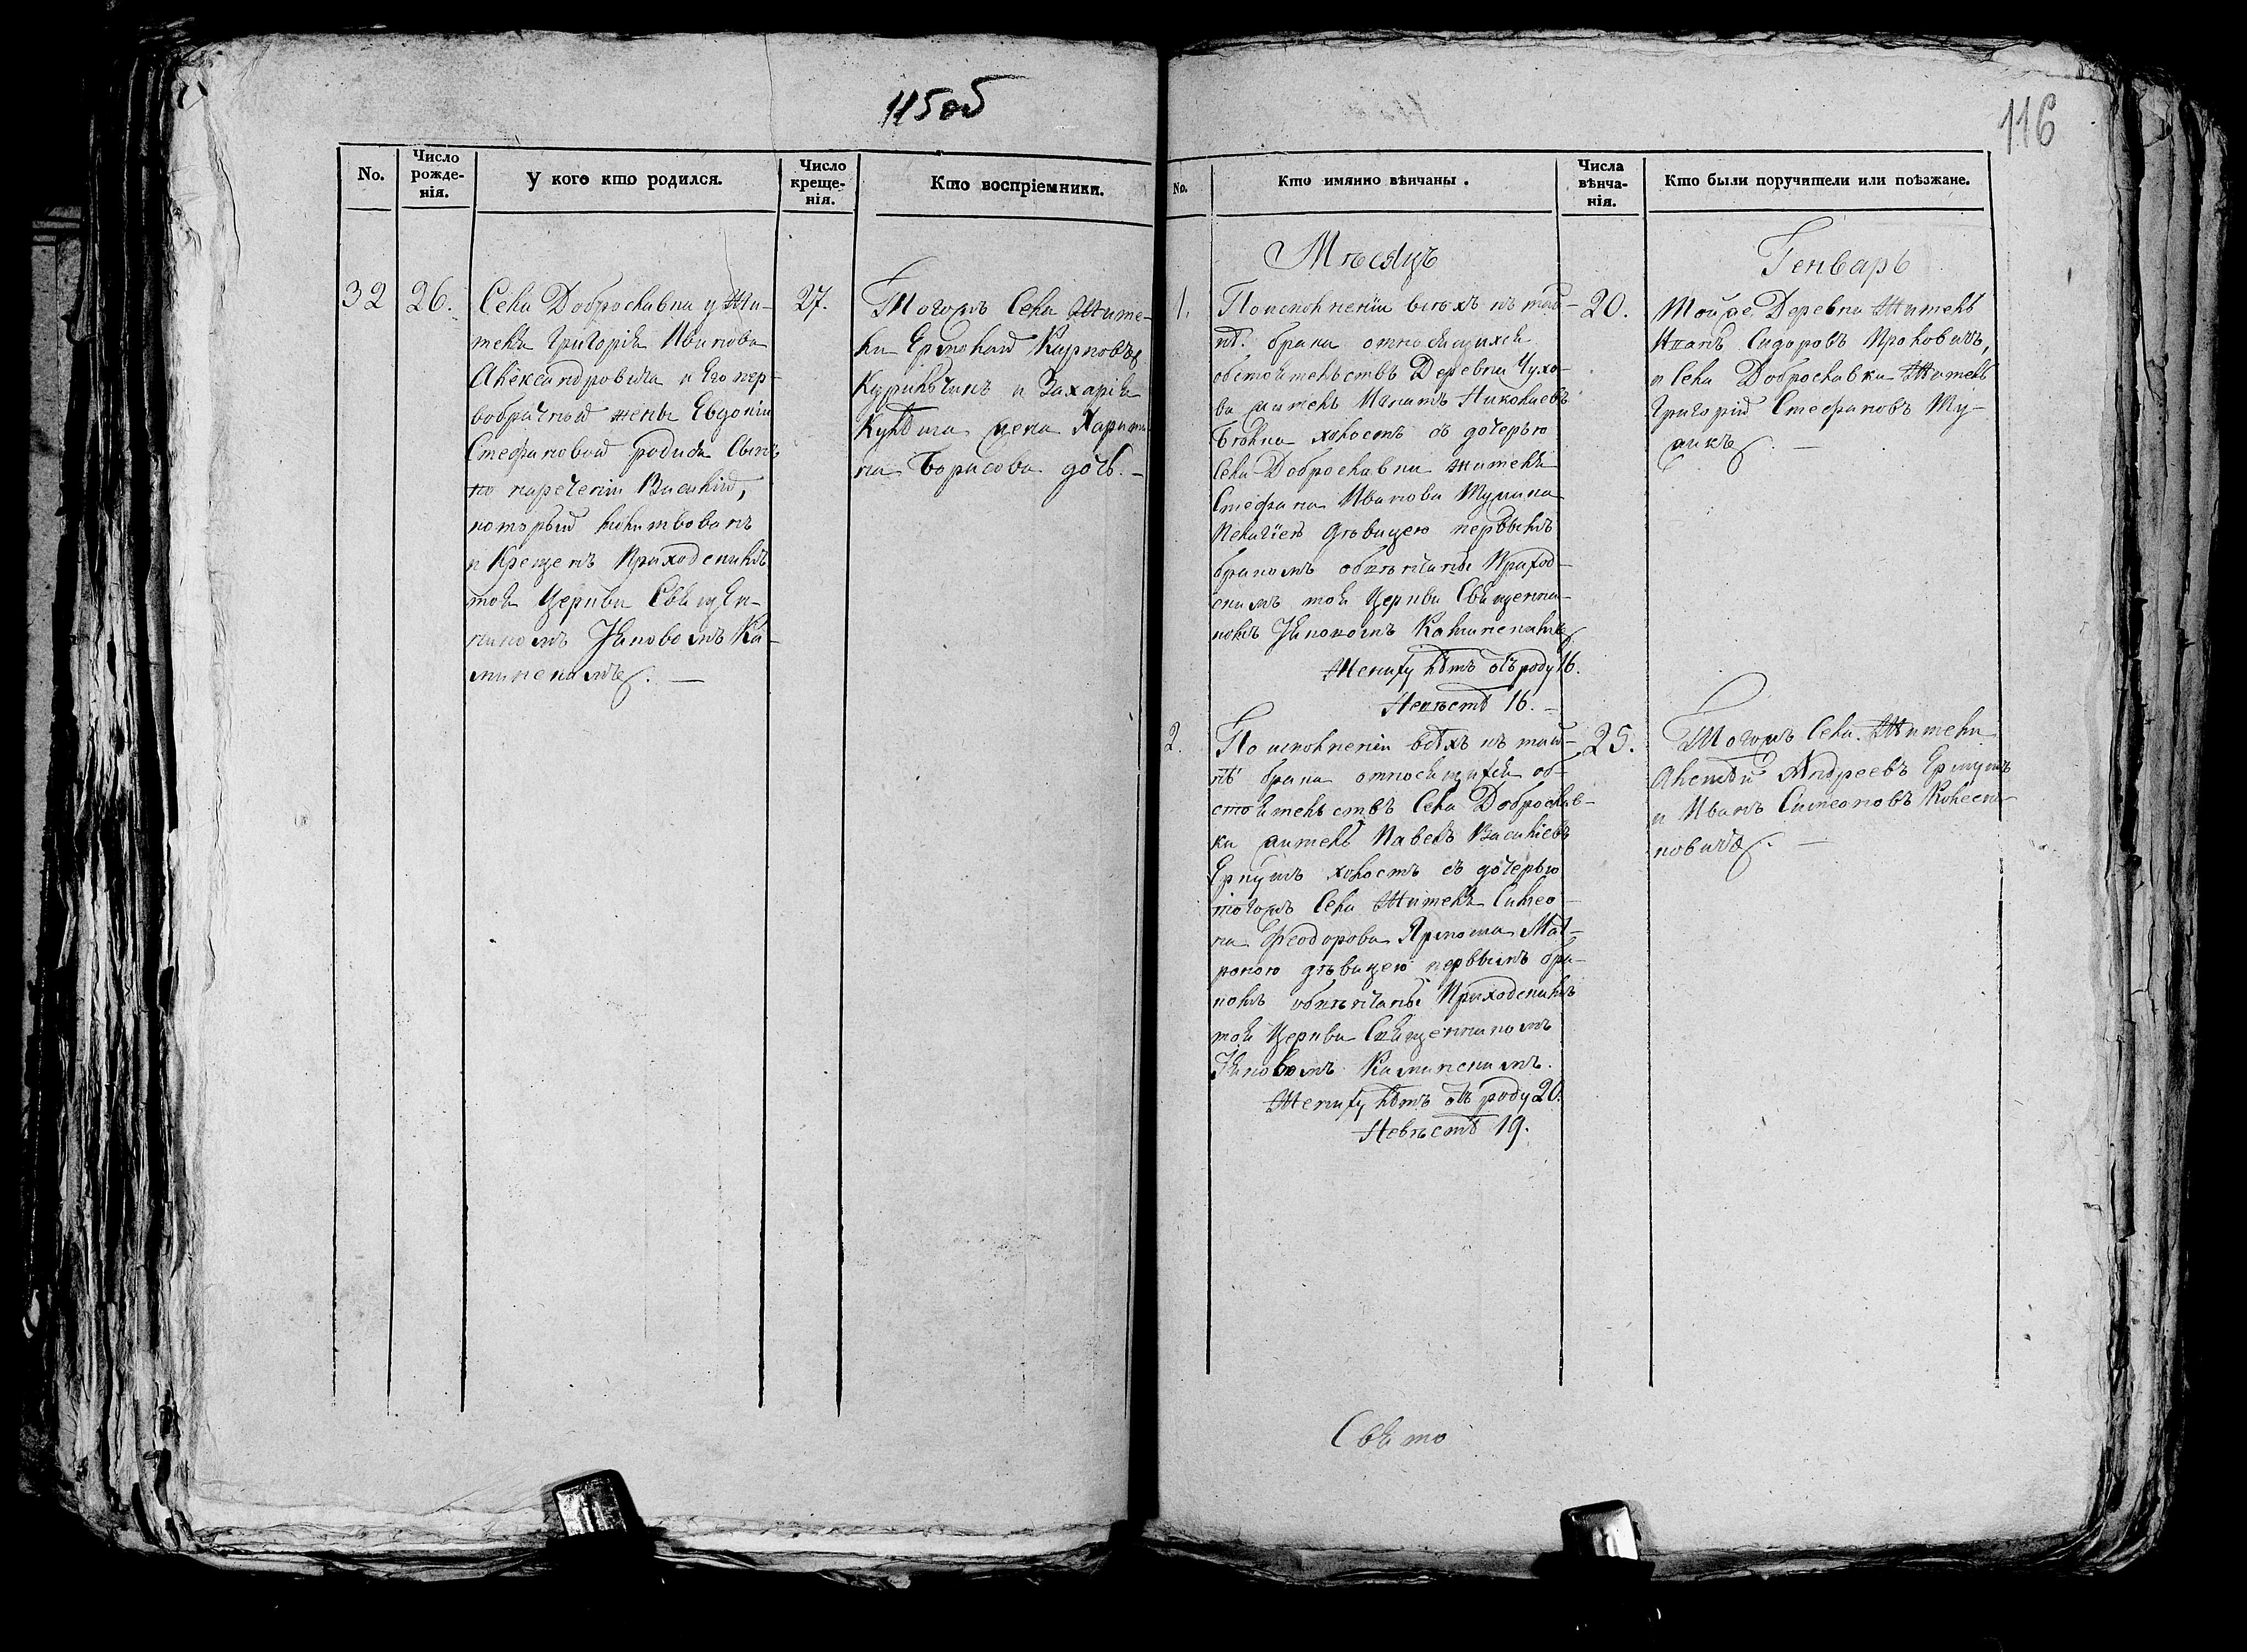 115об
No.
Число рожде-нія.
У кого кто родился.
Число креще-нія.
Кто воспріемники.
32
26.
Села Доброславки у Жи-
теля Григорія Иванова
Александровича и Его пер-
вобрачной жены Евдокіи
Стефановой родися Сынъ
по наречении Василій,
который молитвованъ
и Крещенъ Приходскимъ
тоя Церкви Священ-
никомъ Іяковомъ Ка-
минскимъ. —
27.
Тогожъ Села Жите-
ли Ермолай Карповъ
и Захарія
жена
на Борисова дочь. —
116
No.
Кто имянно вѣнчаны.
Числа вѣнча-нія.
Кто были поручители или поѣзжане.
Мѣсяцъ
Генварь
1.
По исполненіи всѣхъ къ тай-
нѣ брака относящихся
обстоятельствъ Деревни Чухо-
ва житель Игнатъ Николаевъ
холостъ съ дочерью
Села Доброславки жителя
Стефана Иванова
Пелагіею дѣвицею первымъ
бракомъ обвѣнчаны Приход-
скимъ тоя Церкви Священни-
комъ Іяковомъ Каминскимъ
Жениху лѣтъ отъ роду 16.
Невѣстѣ 16. —
20.
Тойже Деревни Житель
Иванъ Сидоровъ Проковичъ,
и Села Доброславки Житель
Григорій Стефановъ Жу-
—
2.
По исполненіи всѣхъ къ тай-
нѣ брака относящихся об-
стоятельствъ Села Доброслав-
ки житель Павелъ Василіевъ
холостъ съ дочерью
тогожъ Села Жителя Симео-
на Феодорова Мат-
роною дѣвицею первымъ бра-
комъ обвѣнчаны Приходскимъ
тоя Церкви Священникомъ
Іяковомъ Каминскимъ.
Жениху лѣтъ отъ роду 20.
Невѣстѣ 19.
25.
Тогожъ Села Жители
Андреевъ
и Иванъ Симеоновъ Колесни-
ковичъ. —
Свято